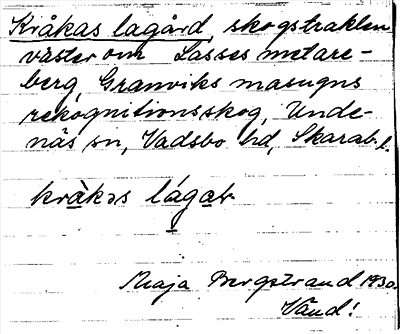 Kråkas lagård, skogstrakten
väster om Lasses metare-
berg, Granviks masugns
rekognitionsskog, Unde-
näs sn, Vadsbo hd, Skarab. l.
kràkas lágaṛ
Maja Bergstrand 1930.
Vänd!